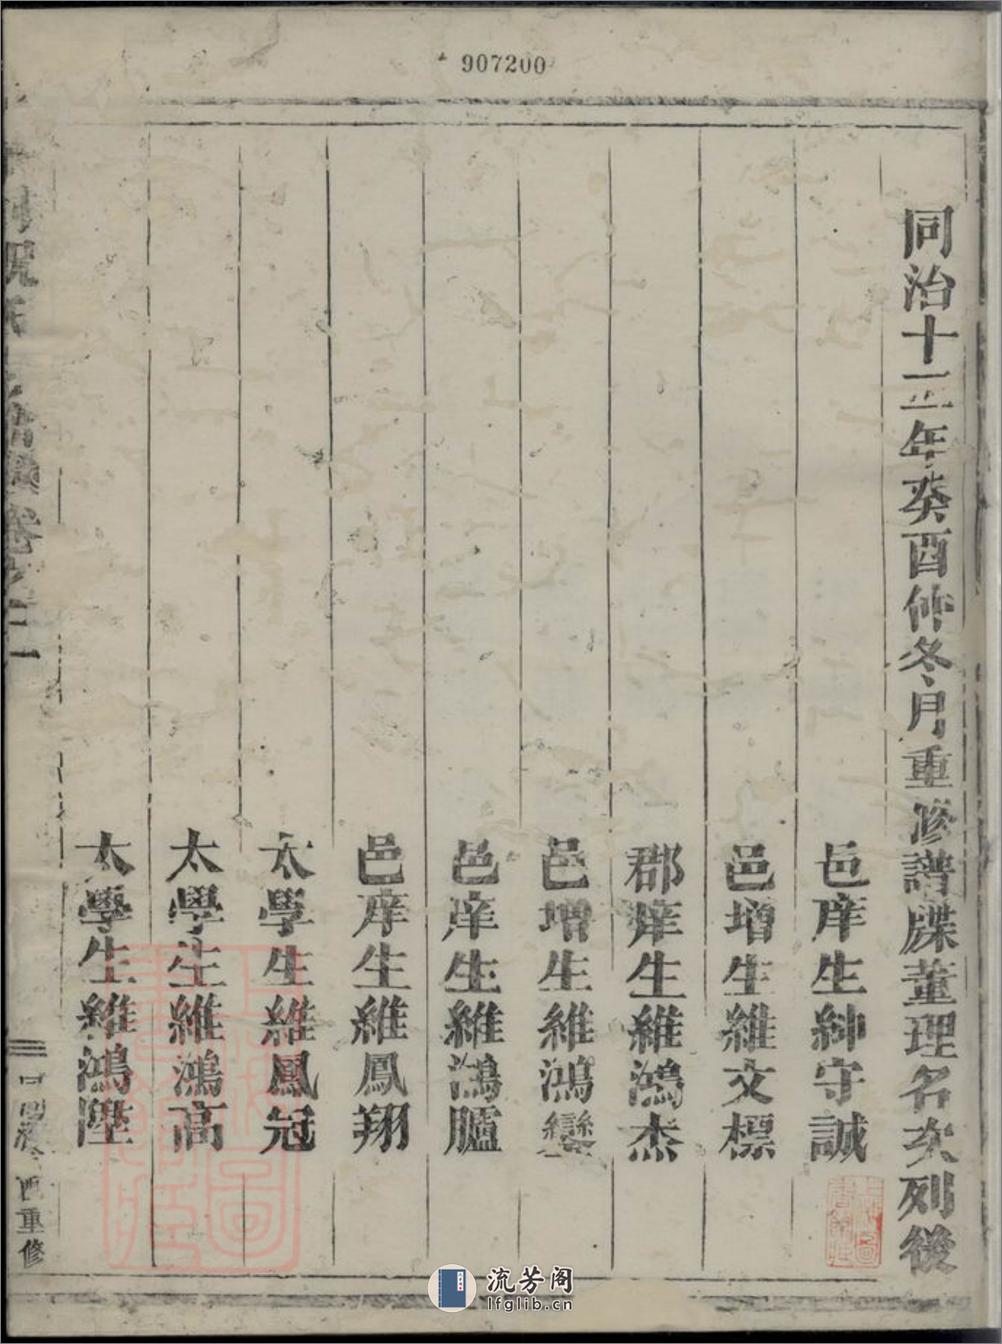 907200
同治十二年癸酉仲冬月重修譜牒董理名次列後
邑庠生紳守誠
邑增生維文標
郡庠生維鴻杰
邑增生維鴻鑾
邑庠生維鴻臚
邑庠生維鳳翔
太學生維鳳冠
太學生維鴻高
太學生維鴻陞
卷之二
酉重修
流芳阁
lfglib.cn